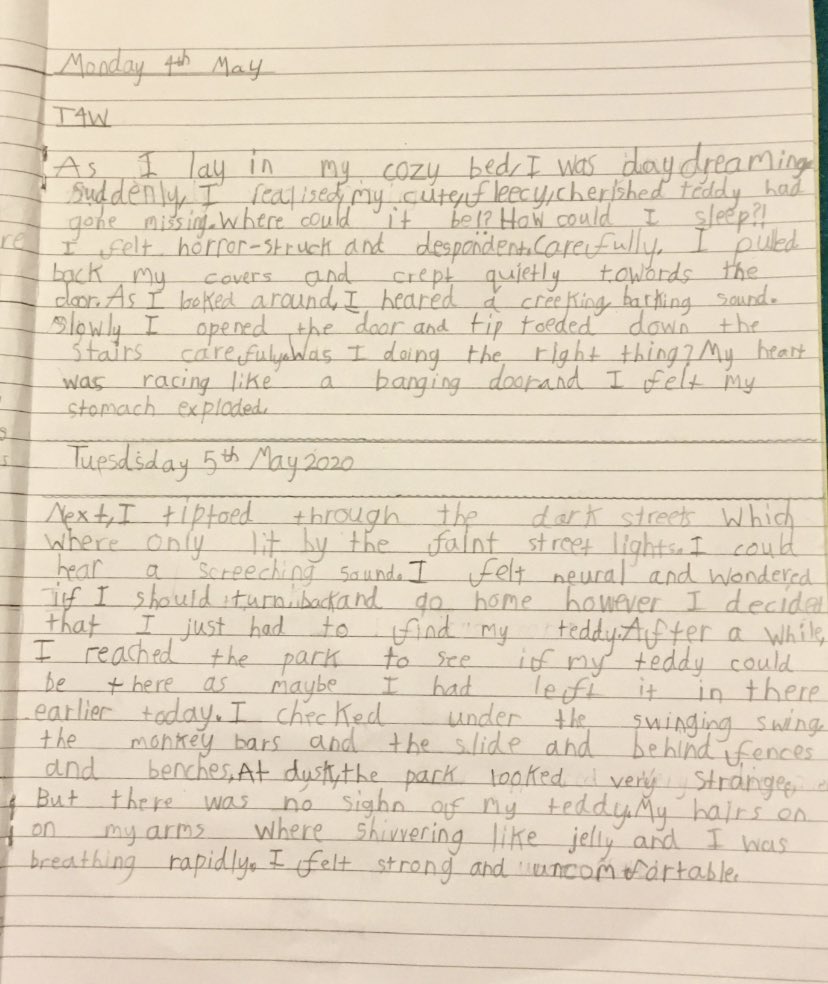 Monday 4th May
T4W
As I lay in my cozy bed, I was daydreaming
suddenly, I realised, my cute, fleecy, cherished teddy had
gone missing. Where could it be!? How could I sleep?!
re I felt horror-struck and despondent. Carefully, I pulled
back my covers and crept quietly towards the
door. As I looked around, I heared a creeking, barking sound.
Slowly I opened the door and tip toeded down the
stairs carefuly. Was I doing the right thing? My heart
was racing like a banging door and I felt my
stomach exploded.
s
s Tuesdsday 5th May 2020
Next, I tiptoed through the dark streets which
where only lit by the faint street lights. I could
hear a screeching sound. I felt neural and wondered
if I should turn back and go home however I decided
that I just had to find my teddy. After a while,
I reached the park to see if my teddy could
be there as maybe I had left it in there
earlier today. I checked under the swinging swing,
the monkey bars and the slide and behind fences
and benches, At dusk, the park looked very strangee,
But there was no sighn of my teddy. My hairs on
on my arms where shivvering like jelly and I was
breathing rapidly. I felt strong and uncomfortable.